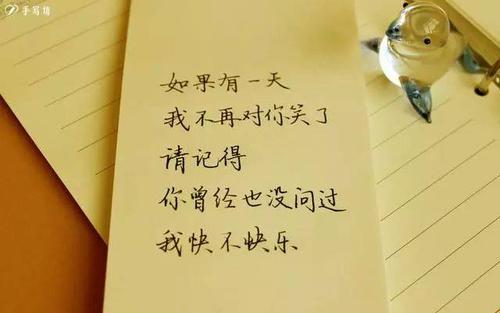 手写坊
如果有一天
我不再对你笑了
请记得
你曾经也没问过
我快不快乐